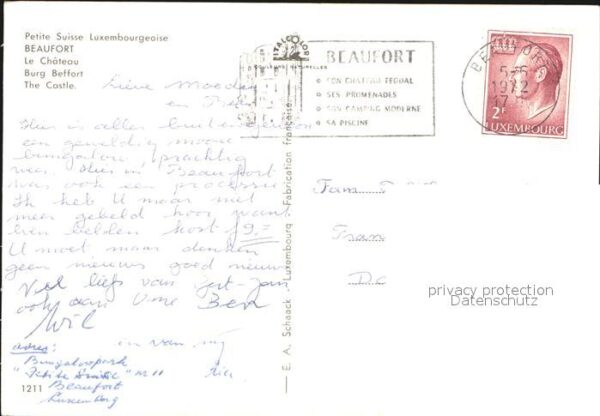 Petite Suisse Luxembourgeoise
BEAUFORT
Le Château
Burg Beffort
The Castle.
ITALCOLOR
COULEURS NATURELLES
BEAUFORT
SON CHATEAU FEODAL
SES PROMENADES
SON CAMPING MODERNE
SA PISCINE
BEAUFORT
5-5
1972
17
2F
LUXEMBOURG
Lieve Moeder
en
Hier is alles buitengewoon
een geweldig mooie
bungalow, prachtig
weer. Hier in Beaufort
was ook een processie
Ik heb U maar niet
meer gebeld hoor, want
bellen kost f 9,=
U moet maar denken
geen nieuws goed nieuws
Veel liefs van Gert-Jan
ook aan Ome Ben
Wil
en van mij
Ria
adres:
Bungalowpark
"Petite Suisse" no 11
Beaufort
Luxemburg
1211
E. A. Schaack - Luxembourg - Fabrication française
Fam
Fran
De
privacy protection
Datenschutz